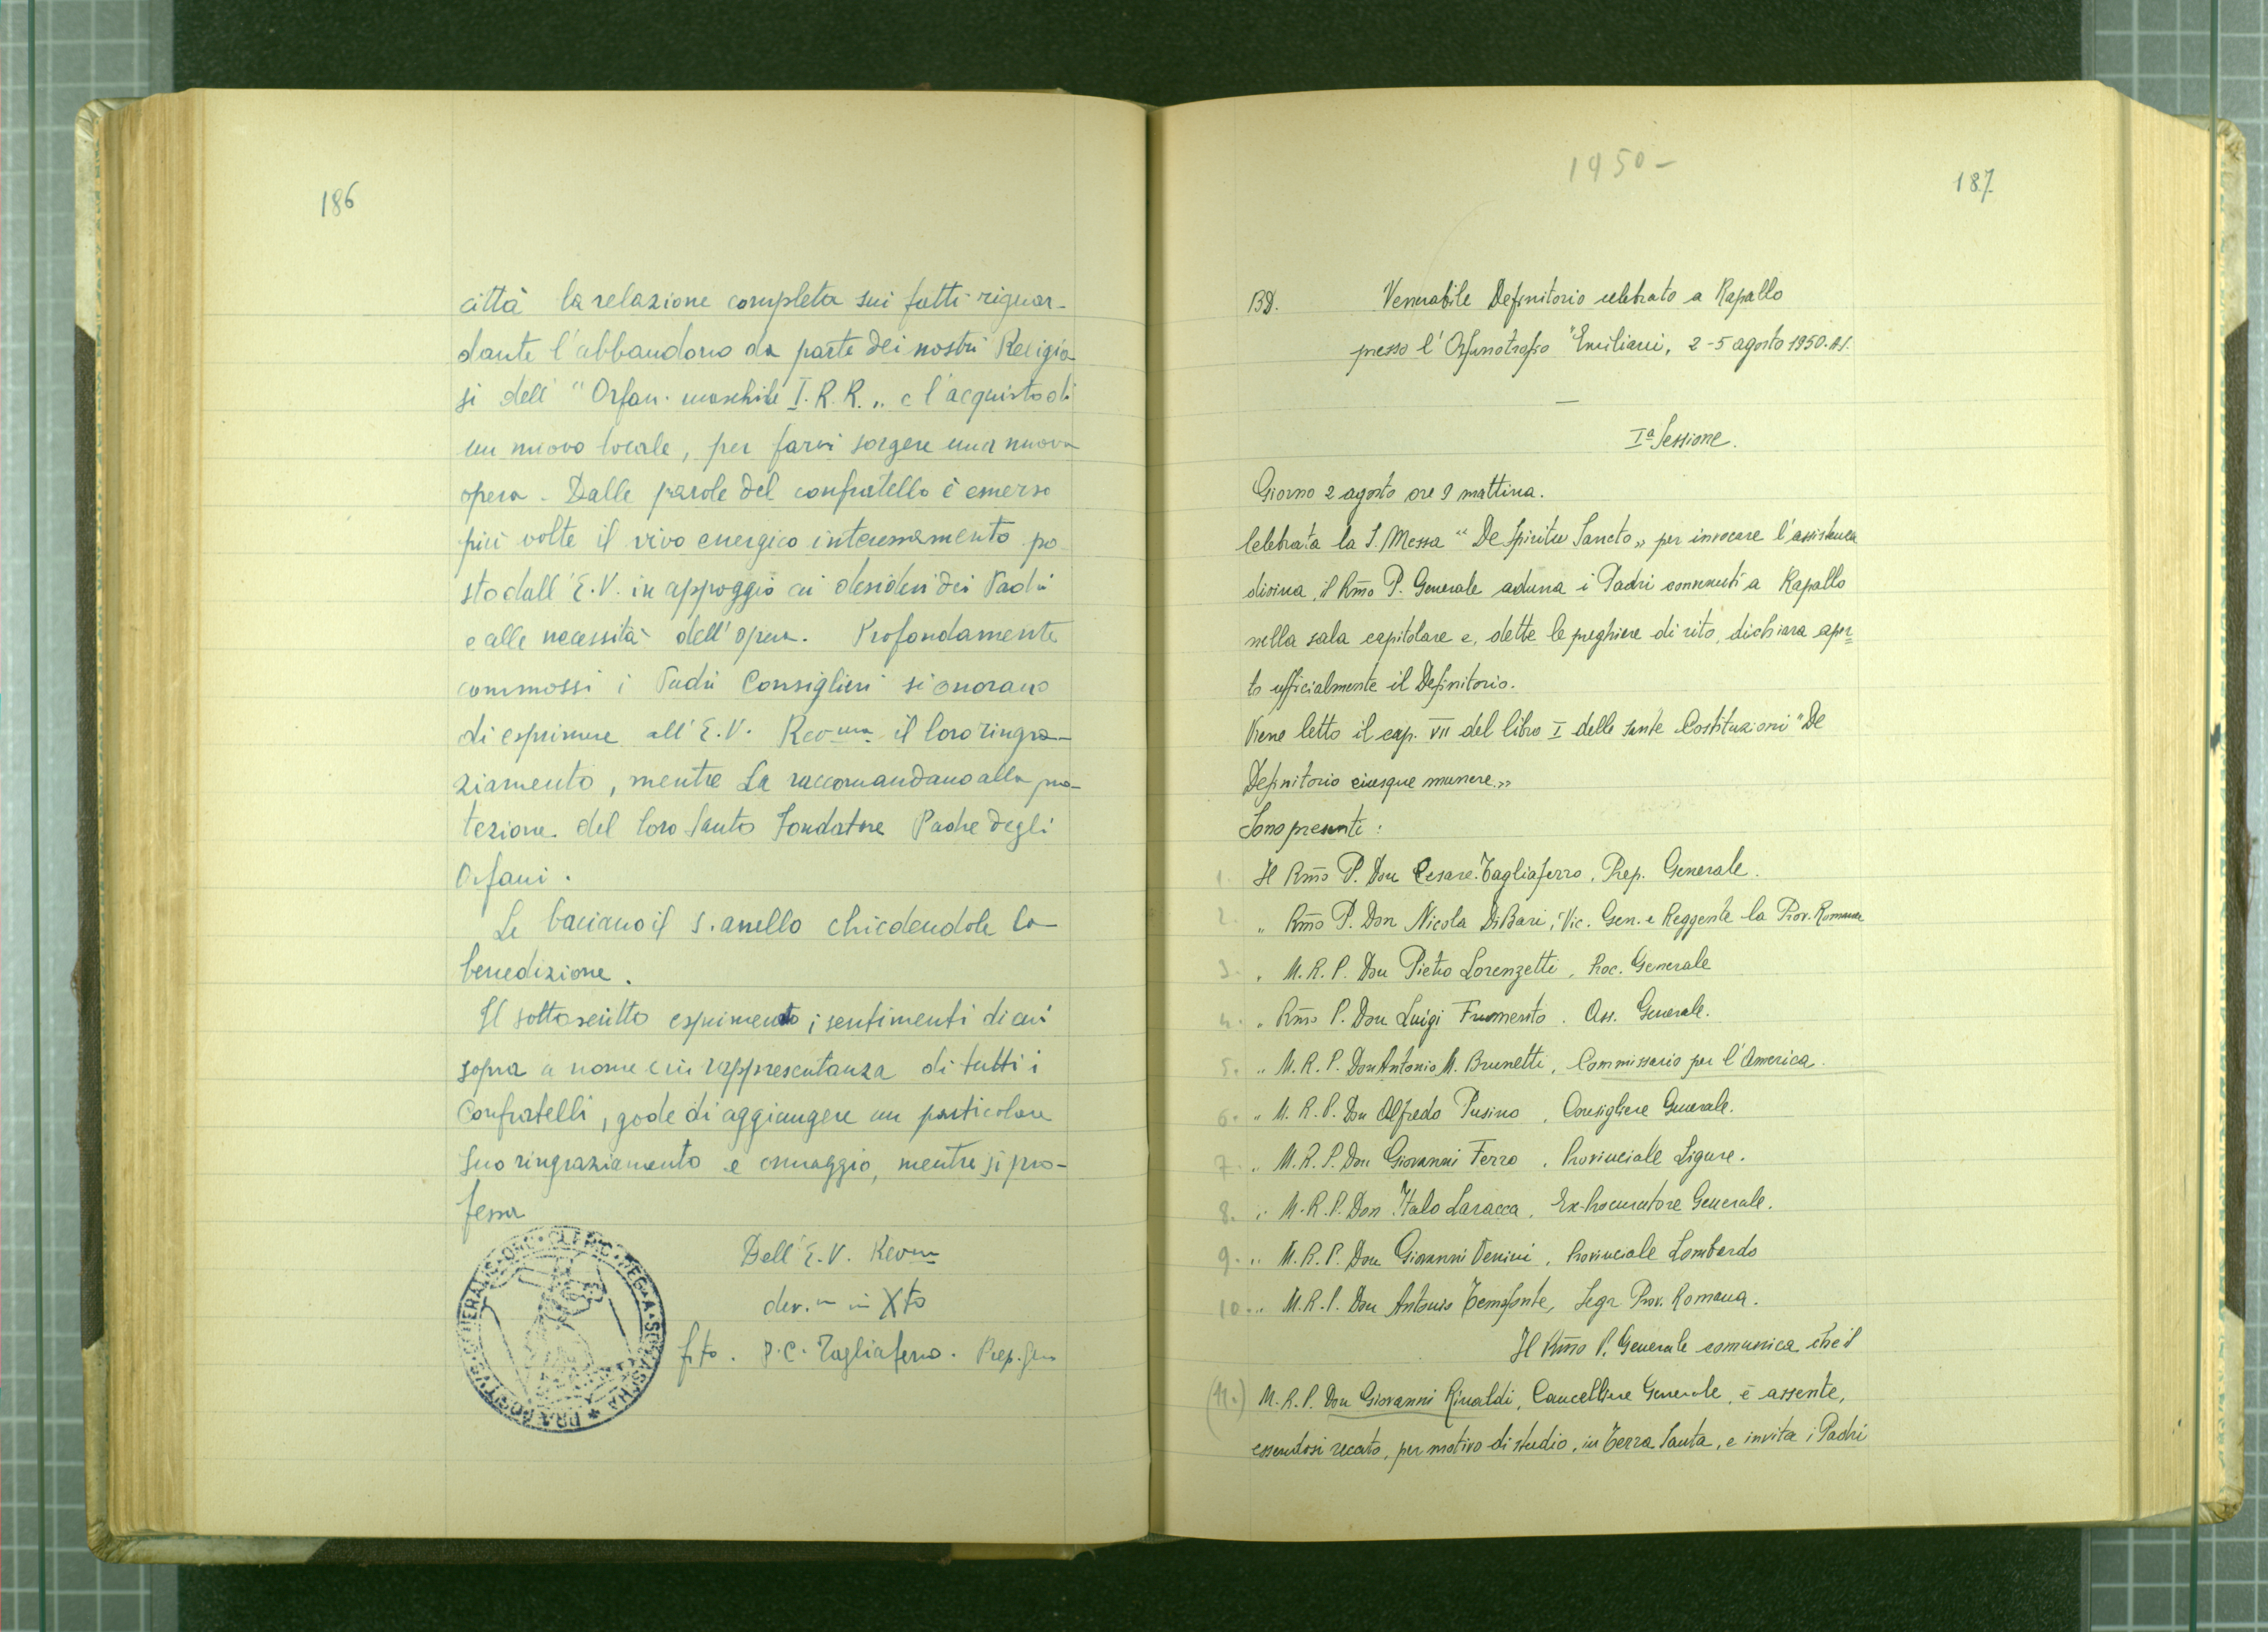 186
città la relazione completa sui fatti riguar-
dante l'abbandono da parte dei nostri Religio-
si dell' "Orfan. maschile I. R. R. „ e l'acquisto di
un nuovo locale, per farvi sorgere una nuova
opera - Dalle parole del confratello è emerso
più volte il vivo energico interessamento po-
sto dall' E. V. in appoggio ai desideri dei Padri
e alle necessità dell' opera. Profondamente
commossi i Padri Consiglieri si onorano
di esprimere all' E. V. Rev.ma il loro ringra-
ziamento, mentre La raccomandano alla pro-
tezione del loro Santo Fondatore Padre degli
Orfani.
Le baciano il s. anello chiedendole la
benedizione.
Il sottoscritto esprimendo i sentimenti di cui
sopra a nome e in rappresentanza di tutti i
Confratelli, gode di aggiungere un particolare
suo ringraziamento e omaggio, mentre si pro-
fessa
Dell' E. V. Rev.ma
dev.mo in Xto
f.to. P. C. Tagliaferro. Prep. Gen
PRAEPOSITUS GENERALIS ORD. CLERIC. REG. A SOMASCHA
1950-
187
BD. Venerabile Definitorio celebrato a Rapallo
presso l'Orfanotrofio "Emiliani, 2-5 agosto 1950. A.S.
Iª Sessione.
Giorno 2 agosto ore 9 mattina.
Celebrata la S. Messa "De Spiritu Sancto„ per invocare l'assistenza
divina, il Rm̃o P. Generale aduna i Padri convenuti a Rapallo
nella sala capitolare e, dette le preghiere di rito, dichiara aper=
to ufficialmente il Definitorio.
Viene letto il cap. VII del libro I delle sante Costituzioni "De
Definitorio eiusque munere.„
Sono presenti:
1. Il Rm̃o P. Don Cesare Tagliaferro, Prep. Generale.
2. „ Rm̃o P. Don Nicola DiBari, Vic. Gen. e Reggente la Prov. Romana
3. „ M. R. P. Don Pietro Lorenzetti, Proc. Generale
4. „ Rm̃o P. Don Luigi Frumento. Ass. Generale.
5. „ M. R. P. Don Antonio M. Brunetti, Commissario per l'America.
6. „ M. R. P. Don Alfredo Pusino, Consigliere Generale.
7. „ M. R. P. Don Giovanni Ferro, Provinciale Ligure.
8. „ M. R. P. Don Italo Laracca, Ex-Procuratore Generale.
9. „ M. R. P. Don Giovanni Venini, Provinciale Lombardo
10. „ M. R. P. Don Antonio Temofonte, Segr. Prov. Romana.
Il Rm̃o P. Generale comunica che il
(11.) M. R. P. Don Giovanni Rinaldi, Cancelliere Generale, è assente,
essendosi recato, per motivo di studio, in Terra Santa, e invita i Padri